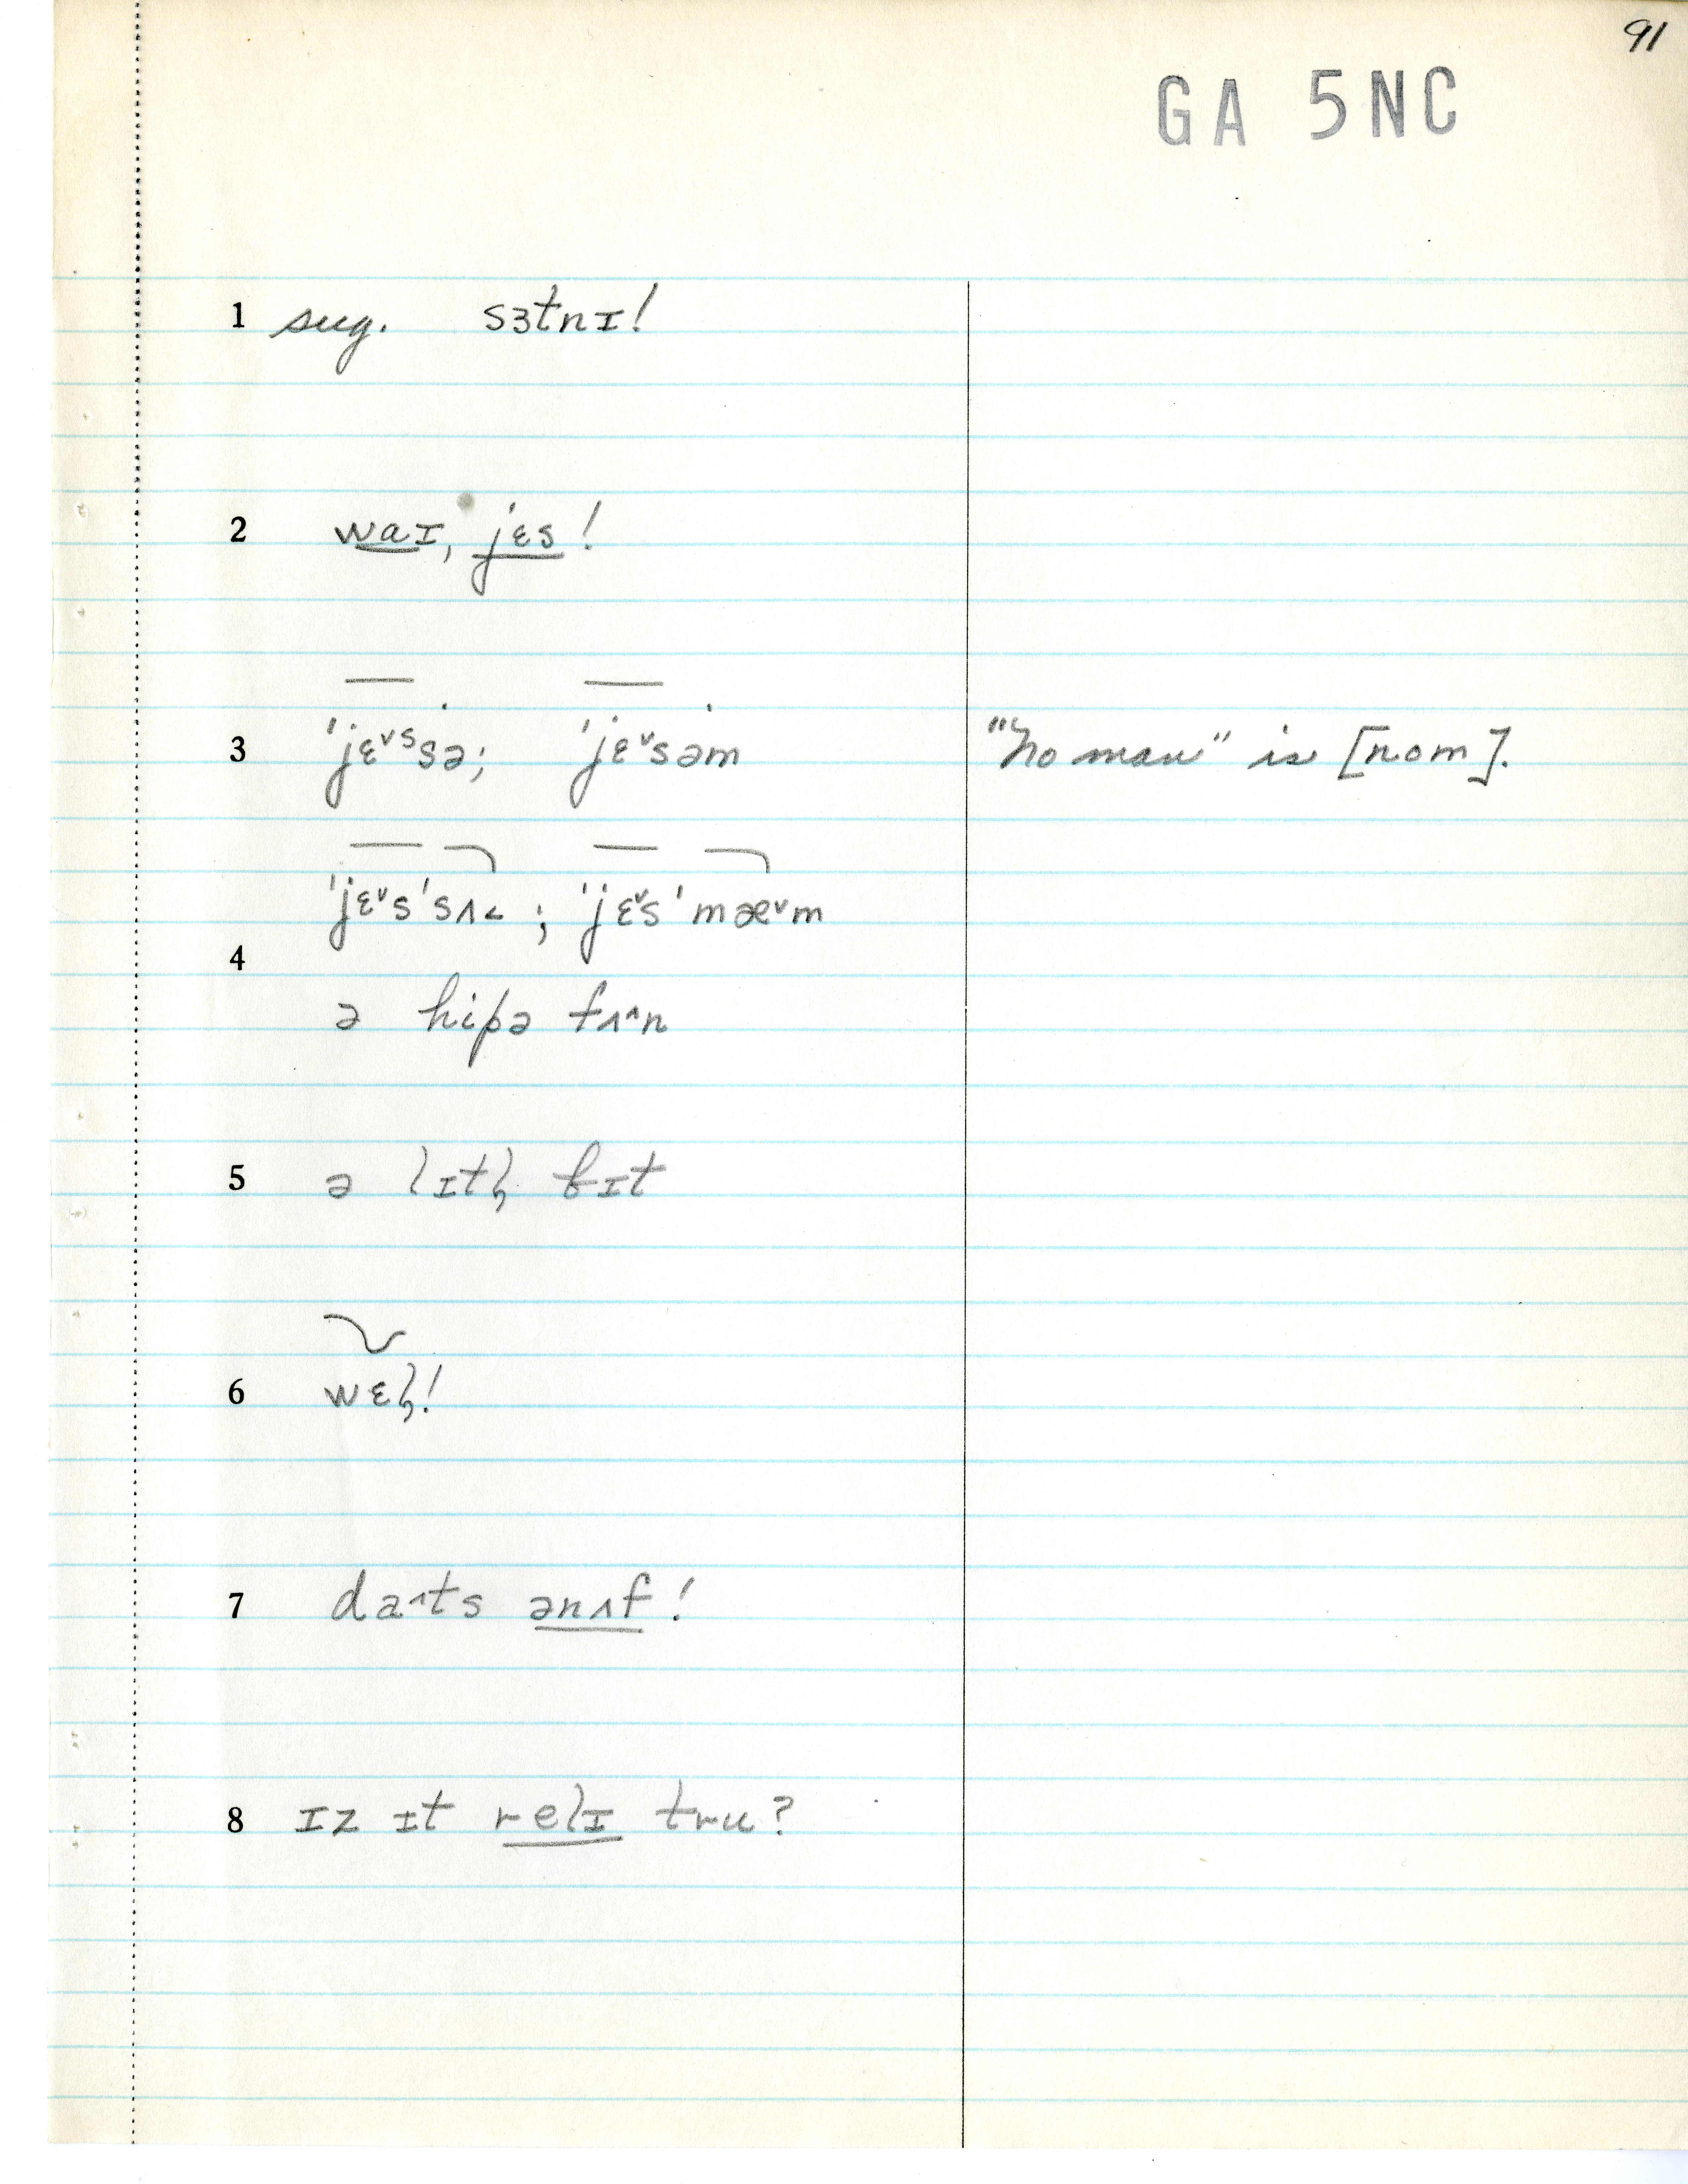 91
GA 5NC
1 sug. sɜtnɪ!
2 waɪ, jɛs!
3 'jɛᵛˢsə; 'jɛᵛsəm "no mam" is [nom].
'jɛᵛs'sʌ< ; 'jɛᵛs'mæᵛm
4
ə hipə fʌ^n
5 ə lɪtl̩ bɪt
6 wɛl̩!
7 da^ts ənʌf!
8 ɪz ɪt relɪ tru?